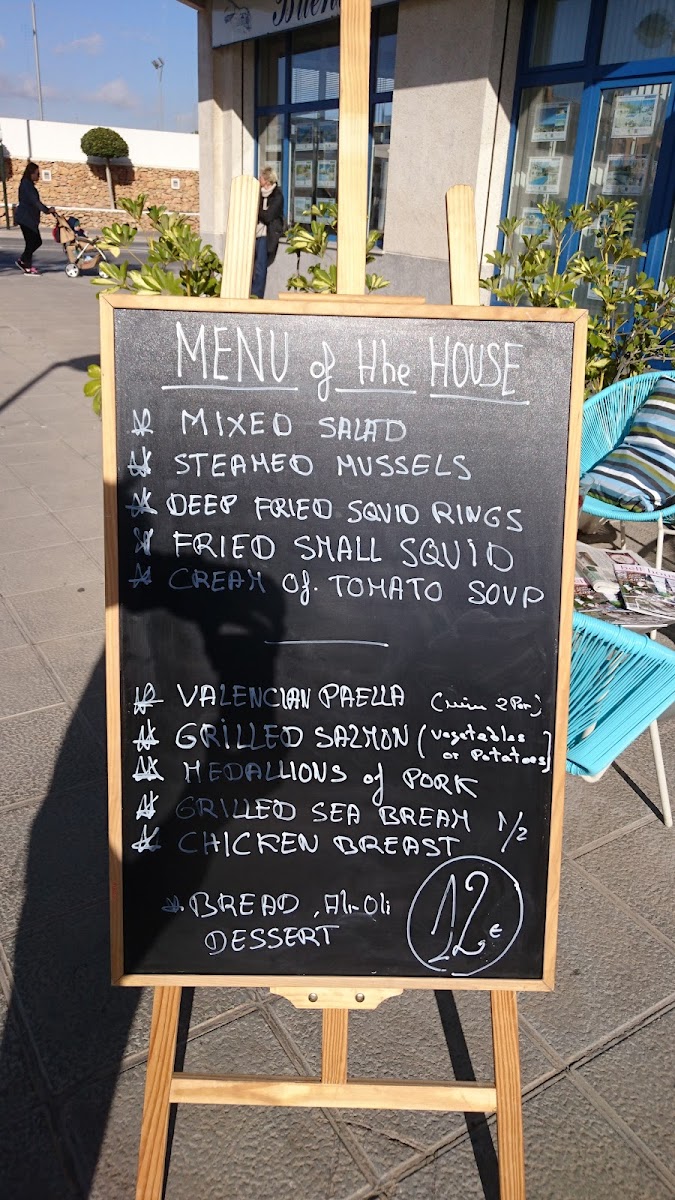 Buen
MENU of Hhe HOUSE
MIXED SALAD
STEAMED MUSSELS
DEEP FRIED SQUID RINGS
FRIED SMALL SQUID
CREAM Of. TOMATO SOUP
VALENCIAN PAELLA (min 2 Per)
GRILLED SALMON (vegetables or Potatoes)
MEDALLIONS of PORK
GRILLED SEA BREAM 1/2
CHICKEN BREAST
BREAD, Ali-Oli
DESSERT
12€